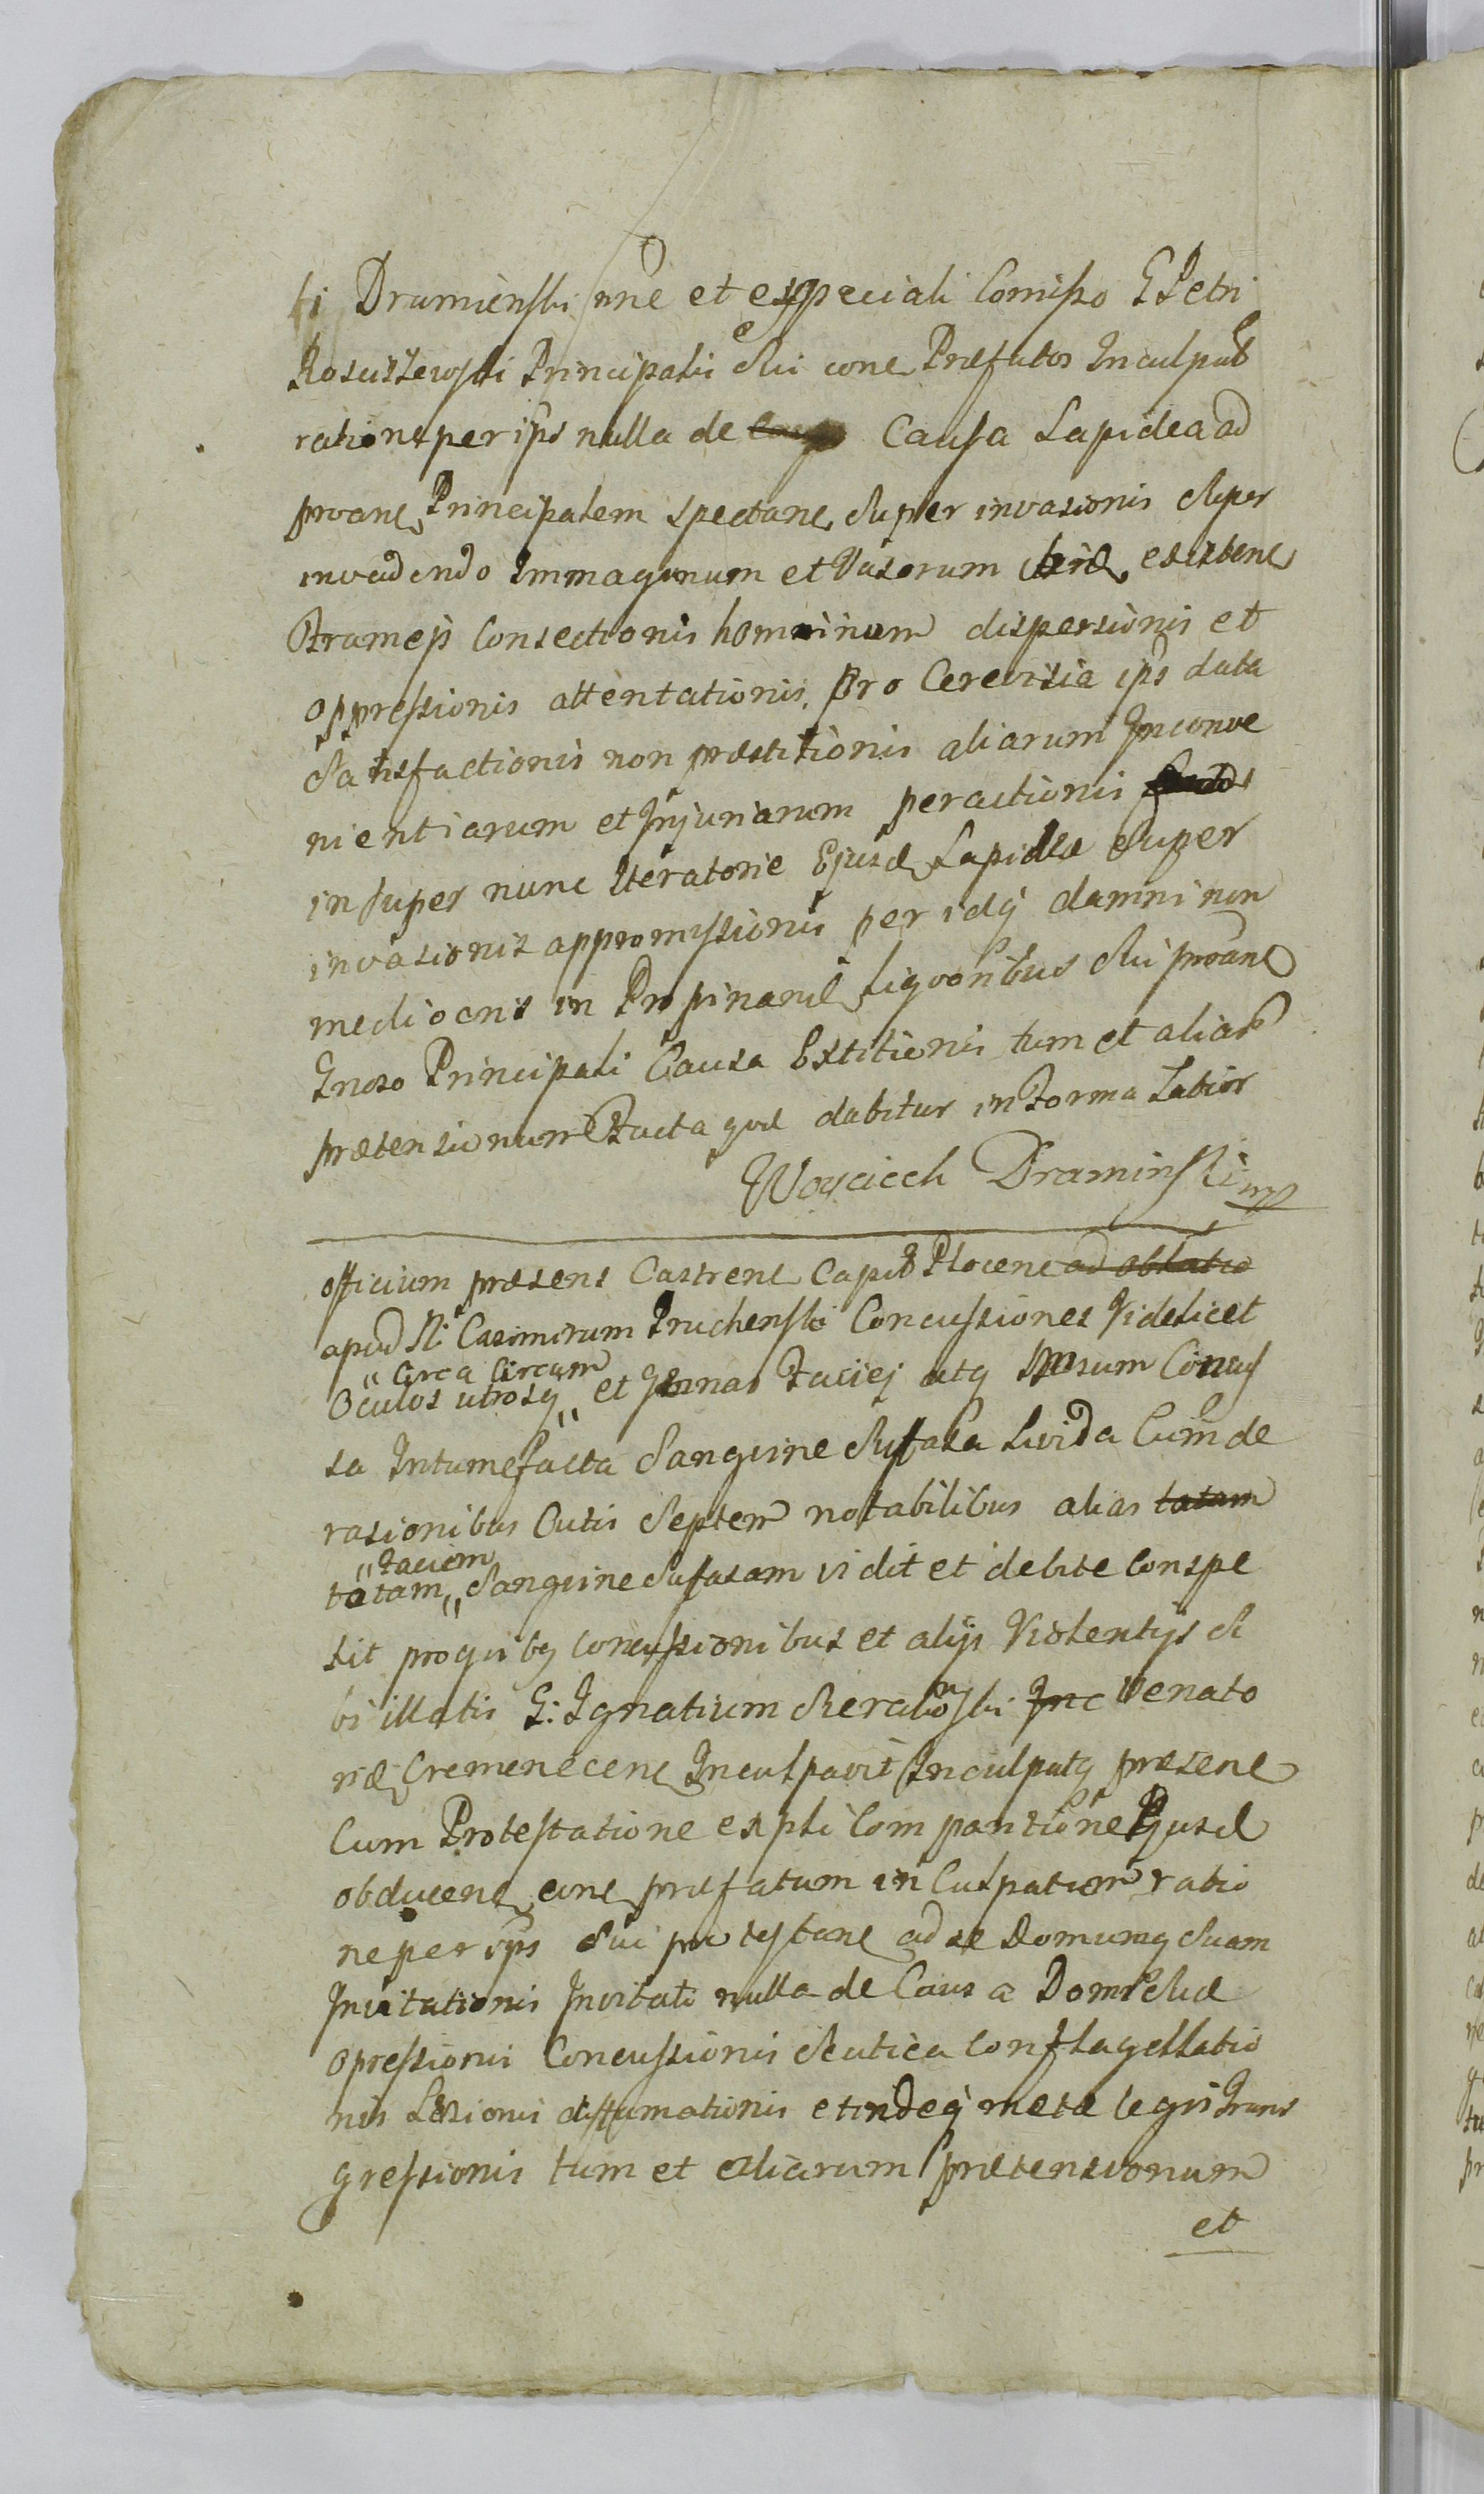 si Dramienski nne et expeciali Comisso G Petri
Rosciszewski Principalis Sui cone Præfatos Inculpatt
ratione per ipso nulla de Causa Lapidea ad
proane Principalem spectane Super invasionis Super
invadendo Immaginum et Vasorum ibid existene
Strameji Consectionis hominum dispersionis et
oppressionis attentationis, pro Cerevisia ipso data
Satisfactionis non præstitionis aliarum Inconve
nientiarum et Injuriarum peractionis
insuper nunc Iteratorie Ejusd Lapidea Super
invasionis appromissionis per idq damni non
mediocris in Propinand liqvoribus Sui proane
Gnoso Principali Causa Extitionis tum et aliar
prætensionum Facta qvæ dabitur in Forma Latior
Woyciech Draminski mp
officium præsens Castrene Capitt Plocene ad oblatio
apud N: Casimirum Pruchenski Concussiones Videlicet
" Circa Circum
Oculos utrosq " et Genas Faciej atq Nasum Concus
sa Intumefacta Sangvine Sufusa Livida Cum de
rasionibus Cutis Septem notabilibus alias totam
" Faciem
totam " Sangvine Sufusam vidit et debite Conspe
xit pro qvibq Concussionibus et alijs Violentijs Si
bi illatis G: Ignatium Sierakowski Inc Venato
rid Cremenecene Inculpavit Inculpatq præsene
Cum Protestatione expsti Compantione Ejusd
obducene cone præfatum inCulpatum ratio
ne per ips Sui protestane ad se Domumq Suam
Invitationis Invitati nulla de Causa Domi Suæ
opressionis Concussionis Scutica Conflagellatio
nis Læsionis diffamationis et indeq metæ legis Trans
gressionis tum et aliarum prætensionum
et